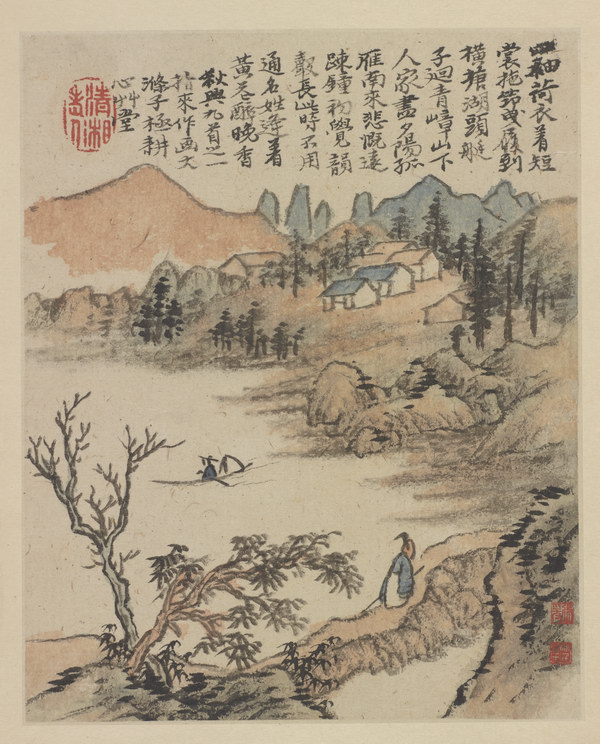 袖荷衣着短
裳拖笻曳屐到
橫塘湖頭艇
子迴青嶂山下
人家盡夕陽孤
雁南來悲慨遠
疎鐘初覺韻
聲長此時不用
通名姓逢着
黃花醉晚香
秋興九首之一
拈來作画文
滌子極耕
心艸堂
清湘
老人